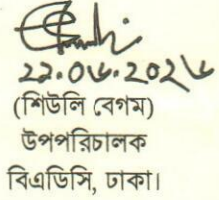 ২২.০৬.২০২৬
(শিউলি বেগম)
উপপরিচালক
বিএডিসি, ঢাকা।